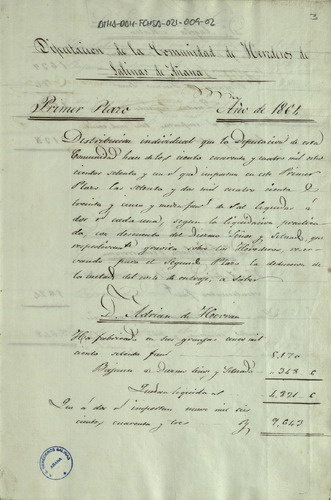 ATHA-DAH-FCHSA-021-005-02
3
Diputacion de la Comunidad de Herederos de
Salinas de Añana
Primer Plazo Año de 1864
Distribucion individual que la Diputacion de esta
Comunidad hace de los ciento cuarenta y cuatro mil ocho
cientos setenta y un rs que importan en este Primer
Plazo, las setenta y dos mil cuatro cientas
treinta y cinco y media fans de Sal liquidas á
dos rs cada una, segun la liquidacion practica
da, con descuento del Diezmo y que
respectivamente gravita sobre los Herederos, reser
vando para el Segundo Plazo la deduccion de
la mitad del costo de entroje, á saber
D. Adrian de Herran
Ha fabricado en sus granjas cinco mil
ciento setenta fans 5,170
Bajansele Diezmo
Quedan liquidas 4,821
Que á dos rs importan nueve mil seis
cientos cuarenta y tres 9,643